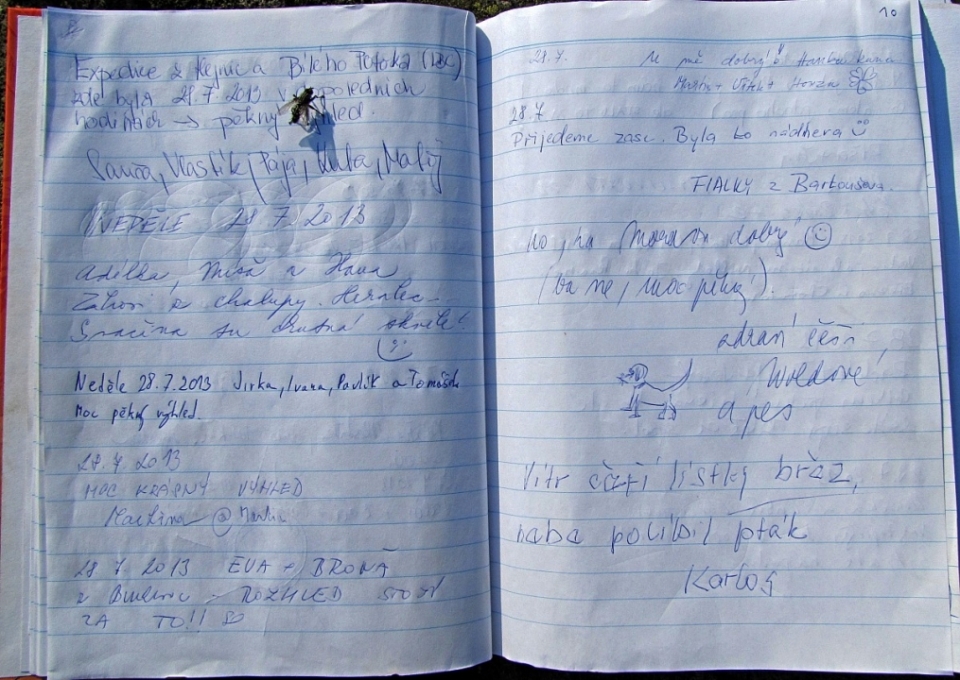 Expedice z Hejnic a Bílého Potoka (LBC)
zde byla 28.7.2013 v odpoledních
hodinách → pěkný výhled.
Saura, Vlastík, Pája, Matěj
NEDĚLE 28 7 2013
Adélka, Míša a Hana
z chalupy Heralec
Svačina su
Neděle 28.7.2013 Jirka, Ivana, Pavlík a Tomášek
Moc pěkný výhled.
28.7 2013
MOC KRÁSNÝ VÝHLED
Martina @ Martin
28 7 2013 EVA + BROŇA
z ROZHLED STOJÍ
ZA TO!!
10
28.7.
dobrý
Martin + Vítek + Honza
28.7
Přijedeme zase. Byla to nádhera
FIALKY z Bartoušova.
No, na Moravu dobrý
(ba ne, moc pěkný).
zdraví češi,
Woldové
a pes
Vítr čtští lístky bříz,
nebe políbil pták
Karlos